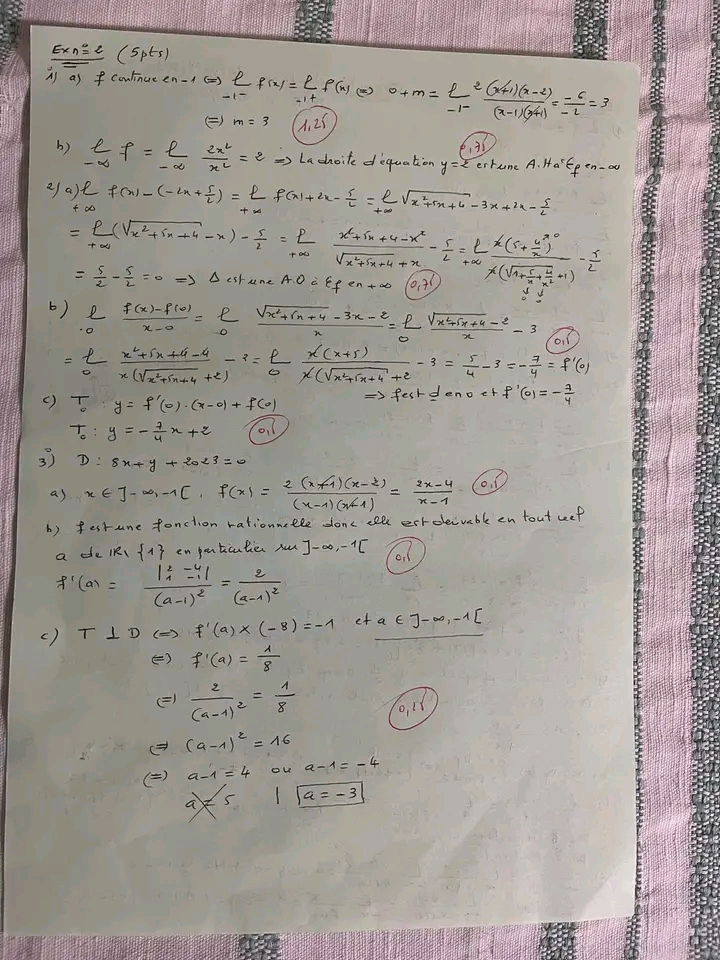 Ex n° 2 (5pts)
1) a) f continue en -1 ⇔ ℓ_{-1⁻} f(x) = ℓ_{-1⁺} f(x) ⇔ 0+m = ℓ_{-1⁻} 2(x+1)(x-2)/((x-1)(x+1)) = -6/-2 = 3
⇔ m = 3 1,25
b) ℓ_{-∞} f = ℓ_{-∞} 2x²/x² = 2 ⇒ La droite d'équation y=2 est une A.H à ζf en -∞ 0,75
2) a) ℓ_{+∞} f(x) - (-2x + 5/2) = ℓ_{+∞} f(x) + 2x - 5/2 = ℓ_{+∞} √(x²+5x+4) - 3x + 2x - 5/2
= ℓ_{+∞} (√(x²+5x+4) - x) - 5/2 = ℓ_{+∞} (x²+5x+4-x²)/(√(x²+5x+4) + x) - 5/2 = ℓ_{+∞} x(5 + 4/x)/(x(√(1 + 5/x + 4/x²) + 1)) - 5/2
= 5/2 - 5/2 = 0 ⇒ Δ est une A.O à ζf en +∞ 0,75
b) ℓ_{0} (f(x) - f(0))/(x-0) = ℓ_{0} (√(x²+5x+4) - 3x - 2)/x = ℓ_{0} (√(x²+5x+4) - 2)/x - 3
= ℓ_{0} (x²+5x+4-4)/(x(√(x²+5x+4) + 2)) - 3 = ℓ_{0} x(x+5)/(x(√(x²+5x+4) + 2) - 3 = 5/4 - 3 = -7/4 = f'(0) 0,5
⇒ f est d en 0 et f'(0) = -7/4
c) T₀ : y = f'(0).(x-0) + f(0)
T₀ : y = -7/4 x + 2 0,5
3) D : 8x + y + 2023 = 0
a) x ∈ ]-∞,-1[, f(x) = 2(x+1)(x-2)/((x-1)(x+1)) = (2x-4)/(x-1) 0,5
b) f est une fonction rationnelle donc elle est dérivable en tout réel
a de IR\{1} en particulier sur ]-∞,-1[ 0,5
f'(a) = |2 -4 ; 1 -1|/(a-1)² = 2/(a-1)²
c) T ⊥ D ⇔ f'(a) × (-8) = -1 et a ∈ ]-∞,-1[
⇔ f'(a) = 1/8
⇔ 2/(a-1)² = 1/8 0,25
⇔ (a-1)² = 16
⇔ a-1 = 4 ou a-1 = -4
a = 5 | a = -3